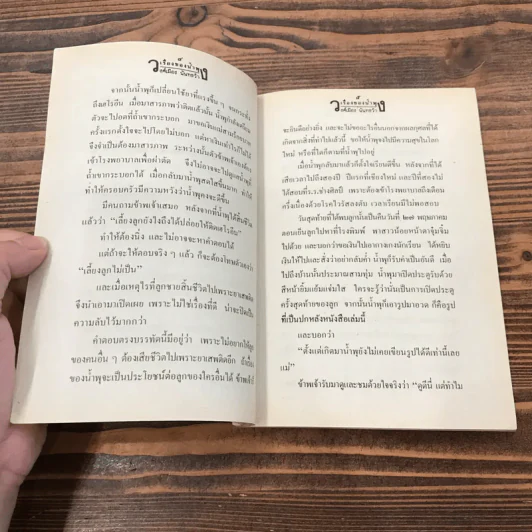 เรื่องของน้ำพุ
สุวรรณี สุคนธา
จากนั้นน้ำพุก็เปลี่ยนใช้ยาที่แรงขึ้น ๆ จนกระทั่ง
ถึงเฮโรอีน เมื่อมาสารภาพว่าติดแล้วนั้น
ตัวจะไปอดที่ถ้ำขากระบอก มาขอเงินแม่สามร้อยบาท
ครั้งแรกตั้งใจจะไปโดยไม่บอก แต่หาเงินค่ารถไม่ได้
จึงจำเป็นต้องมาสารภาพ ระหว่างนั้นตัวข้าพเจ้าเองต้อง
เข้าโรงพยาบาลเพื่อผ่าตัด จึงไม่อาจจะไปดูแลน้ำพุที่
ถ้ำขากระบอกได้ เมื่อกลับมาน้ำพุสดใสขึ้นมาก ทำให้
ทำให้ครอบครัวมีความหวังว่าน้ำพุคงจะดีขึ้น
มีคนถามข้าพเจ้าเสมอ หลังจากที่น้ำพุได้สิ้นชีวิต
แล้วว่า “เลี้ยงลูกยังไงถึงได้ปล่อยให้ติดเฮโรอีน”
ทำให้ต้องนิ่ง และไม่อาจจะหาคำตอบได้
แต่ถ้าจะให้ตอบจริง ๆ แล้ว ก็จะต้องโทษตัวเองว่า
“เลี้ยงลูกไม่เป็น”
และเมื่อเหตุไรที่ลูกชายสิ้นชีวิตไปเพราะยาเสพติด
จึงนำเอามาเปิดเผย เพราะไม่ใช่เรื่องที่ดี น่าจะปิดเป็น
ความลับไว้มากกว่า
คำตอบตรงบรรทัดนี้มีอยู่ว่า เพราะไม่อยากให้ลูก
ของคนอื่น ๆ ต้องเสียชีวิตไปเพราะยาเสพติดอีก ถ้าเรื่อง
ของน้ำพุจะเป็นประโยชน์ต่อลูกของใครอื่นได้ ข้าพเจ้าก็
เรื่องของน้ำพุ
สุวรรณี สุคนธา
จะยินดีอย่างยิ่ง และจะไม่ขออะไรอื่นนอกจากผลกุศลที่ได้
เกิดจากสิ่งที่ทำไปแล้วนี้ ขอให้น้ำพุจงไปมีความสุขในโลก
ใหม่ หรือที่ใดก็ตามที่น้ำพุไปอยู่
เมื่อน้ำพุกลับมาแล้วก็ตั้งใจเรียนดีขึ้น หลังจากที่ได้
เสียเวลาไปถึงสองปี ปีแรกที่เชียงใหม่ และปีที่สองไม่
ได้สอบที่ร.ร.ช่างศิลป์ เพราะต้องเข้าโรงพยาบาลถึงเดือน
ครึ่งเนื่องด้วยโรคไวรัสลงตับ เวลาเรียนมีไม่พอสอบ
วันสุดท้ายที่ได้พบลูกนั้นเป็นคืนวันที่ ๒๗ พฤษภาคม
ตอนเย็นลูกไปหาพี่ที่โรงพิมพ์ พาสาวน้อยหน้าตาจุ๋มจิ๋ม
ไปด้วย และบอกว่าขอเงินไปเอากางเกงนักเรียน ได้หยิบ
เงินให้ไปและสั่งว่าอย่ากลับค่ำ น้ำพุก็รับคำเป็นอันดี เมื่อ
ไปถึงบ้านนั้นประมาณสามทุ่ม น้ำพุมาเปิดประตูรับด้วย
สีหน้ายิ้มแย้มแจ่มใส ใครจะรู้ว่านั่นเป็นการเปิดประตู
ครั้งสุดท้ายของลูก จากนั้นน้ำพุก็เอารูปมาอวด ก็คือรูป
ที่เป็นปกหลังหนังสือเล่มนี้
และบอกว่า
“ตั้งแต่เกิดมาน้ำพุยังไม่เคยเขียนรูปได้ดีเท่านี้เลย
แม่”
ข้าพเจ้ารับมาดูและชมด้วยใจจริงว่า “ดูดีนี่ แต่ทำไม